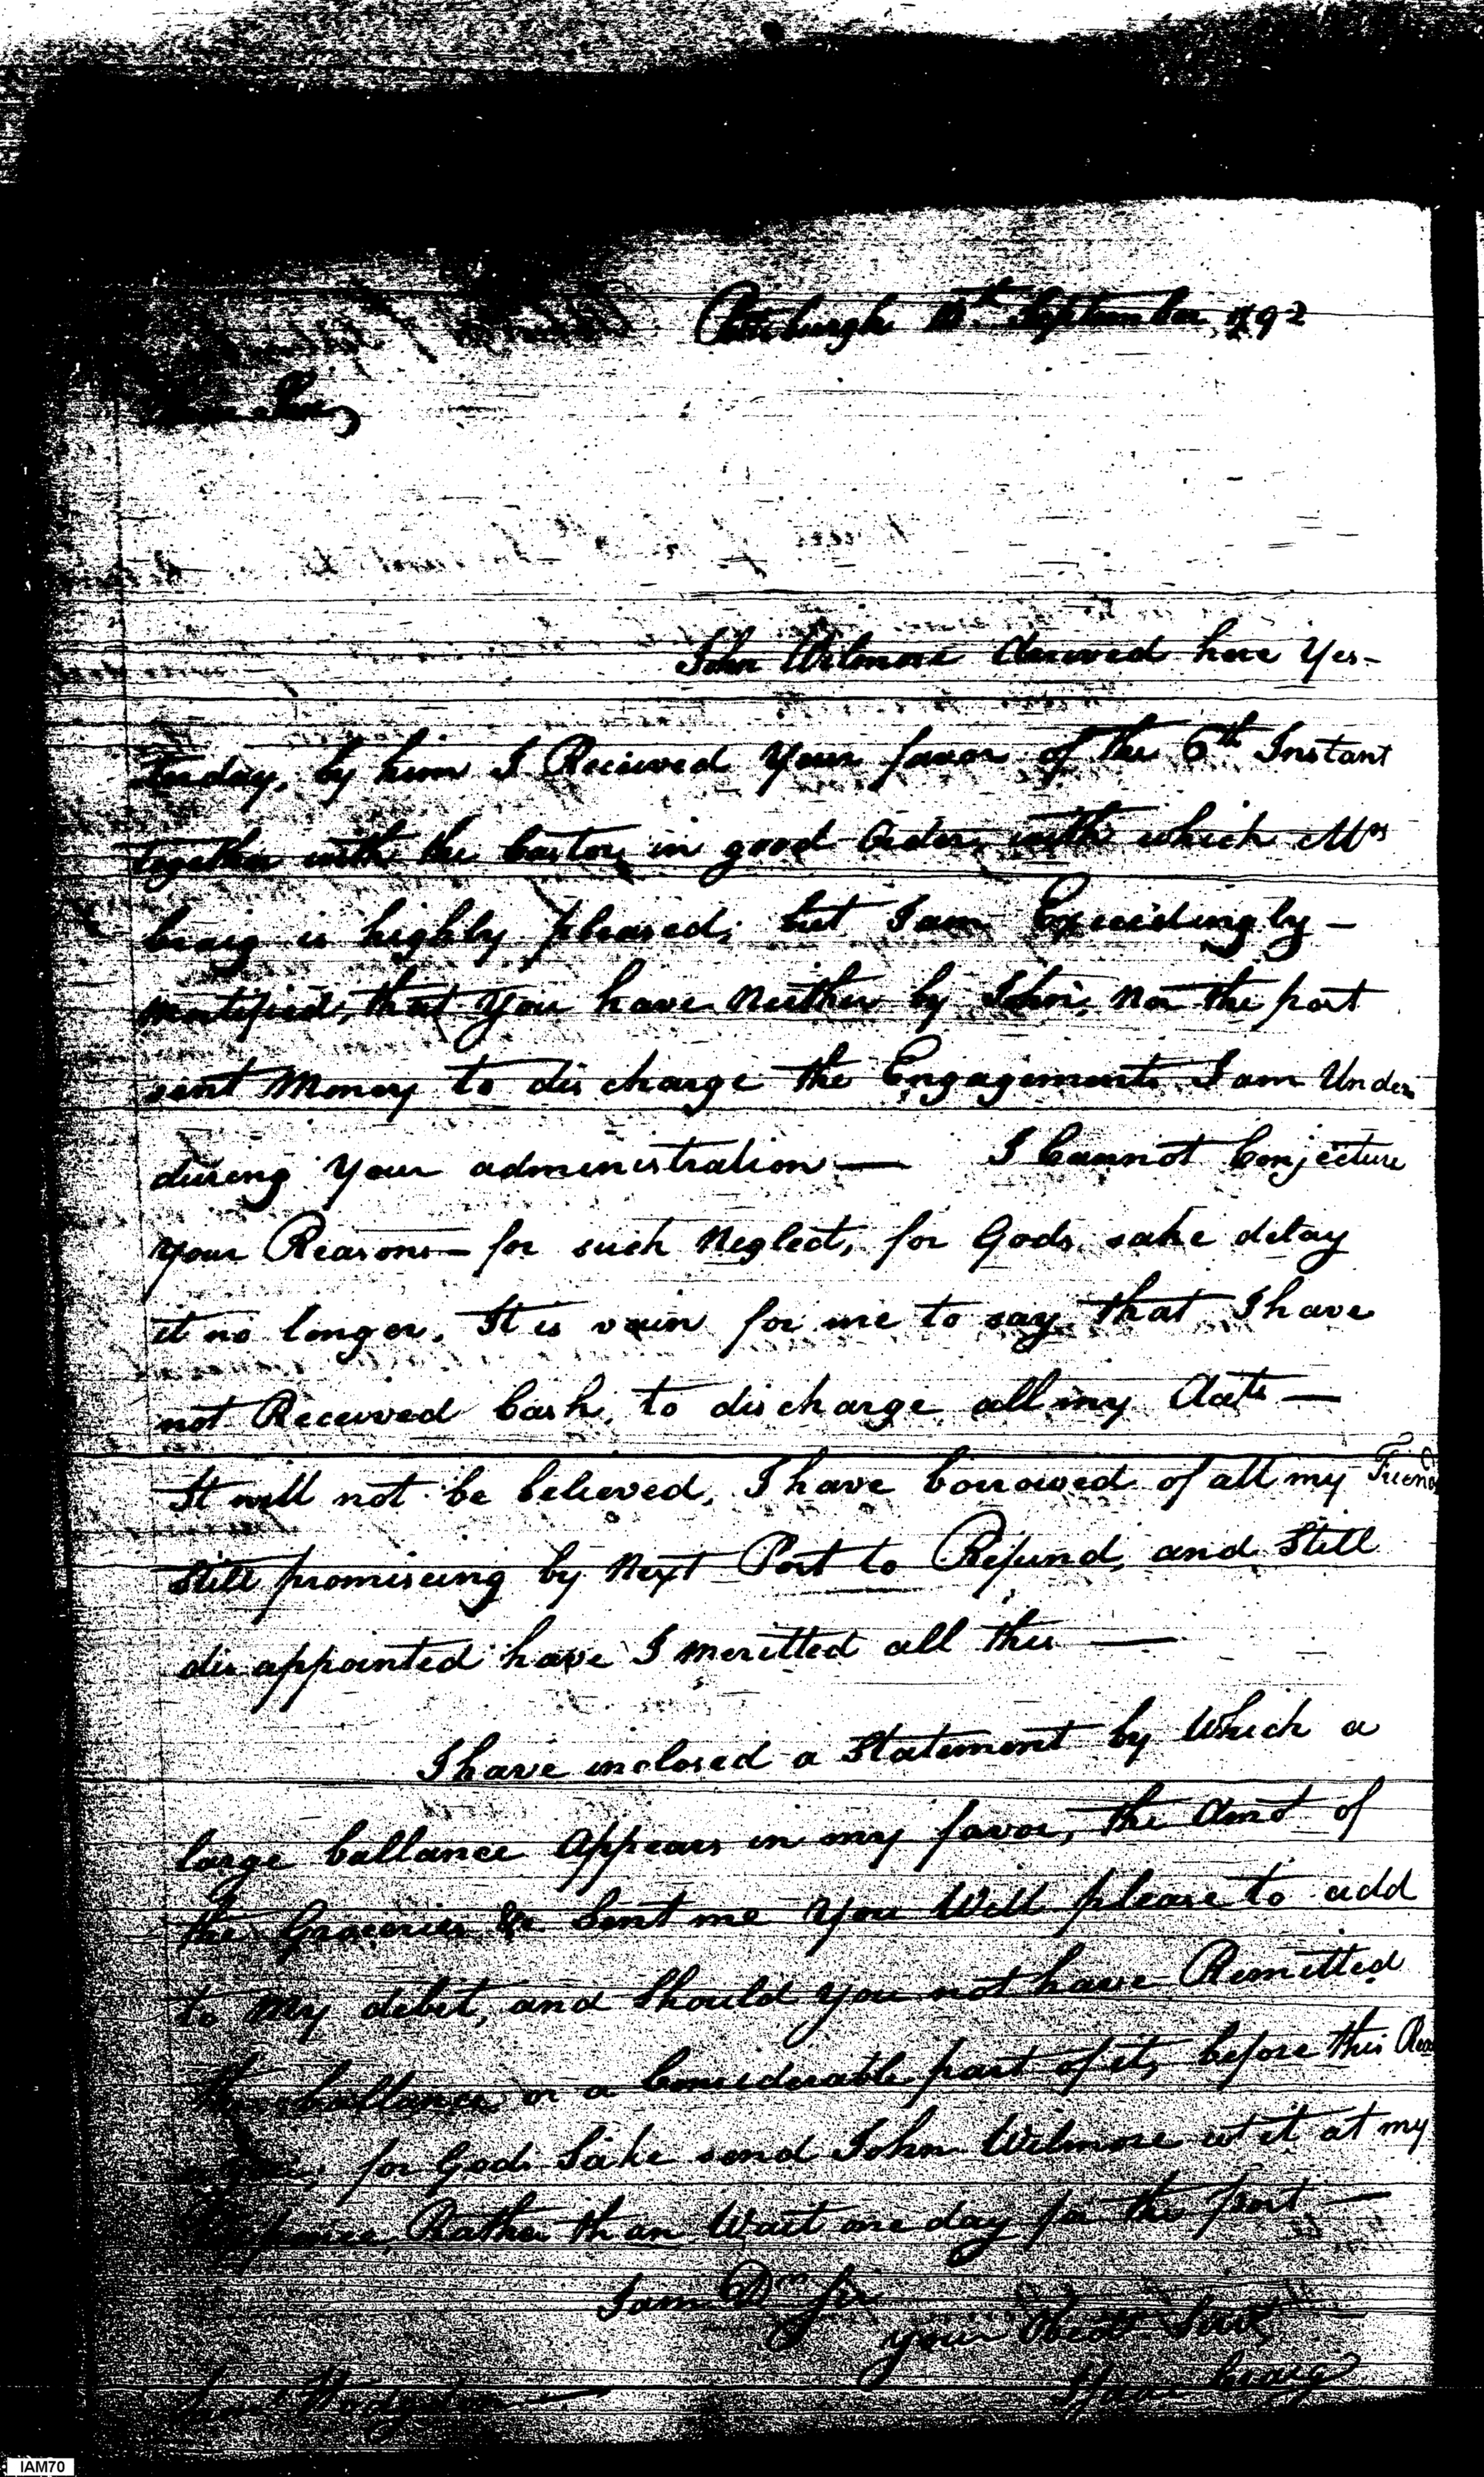 Pittsburgh September 1792
Dear Sir,
John Wilmore Arrived here Yes-
terday, by him I Recieved Your favor of the 6th Instant
together with the Castor, in good Order, with which Mrs
Craig is highly pleased; but I am Exceedingly -
mortified, that You have Neither by John, Nor the post
sent Money to discharge the Engagements I am Under
during Your administration — I Cannot Conjecture
your Reasons for such Neglect, for Gods sake delay
it no longer. It is vain for me to say that I have
not Received Cash, to discharge all my —
It will not be believed, I have borrowed of all my Friends
Still promiseing by Next Post to Refund, and Still
disappointed have I meritted all this —
I have inclosed a Statement by Which a
large ballance Appears in my favor, the Amot of
the Groceries &c Sent me You Will please to add
to My debit, and Should you not have Remitted
ballance or a Considerable part of it, before this
for Gods Sake send John Wilmore wt it at my
Expence, Rather than Wait one day for the post —
I am Dr Sir
your Obed Servt
Isaac Craig
Saml Hodgdon
IAM70